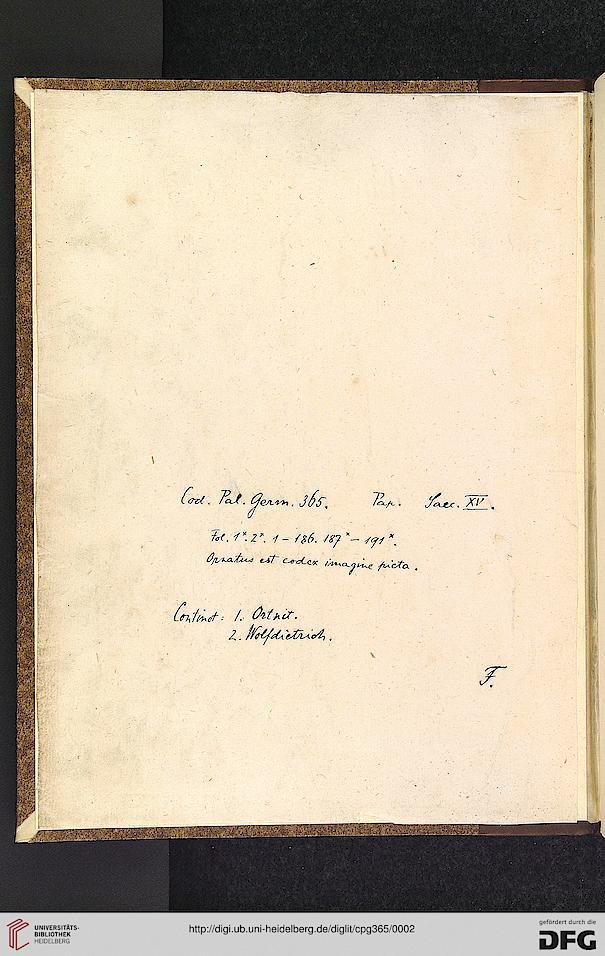 Cod. Pal. Germ. 365. Pap. Saec. XV.
Fol. 1*. 2*. 1 – 186. 187* – 191*.
Ornatus est codex imagine picta.
Continet: 1. Ortnit.
2. Wolfdietrich.
F.
UNIVERSITÄTS-
BIBLIOTHEK
HEIDELBERG
http://digi.ub.uni-heidelberg.de/diglit/cpg365/0002
gefördert durch die
DFG